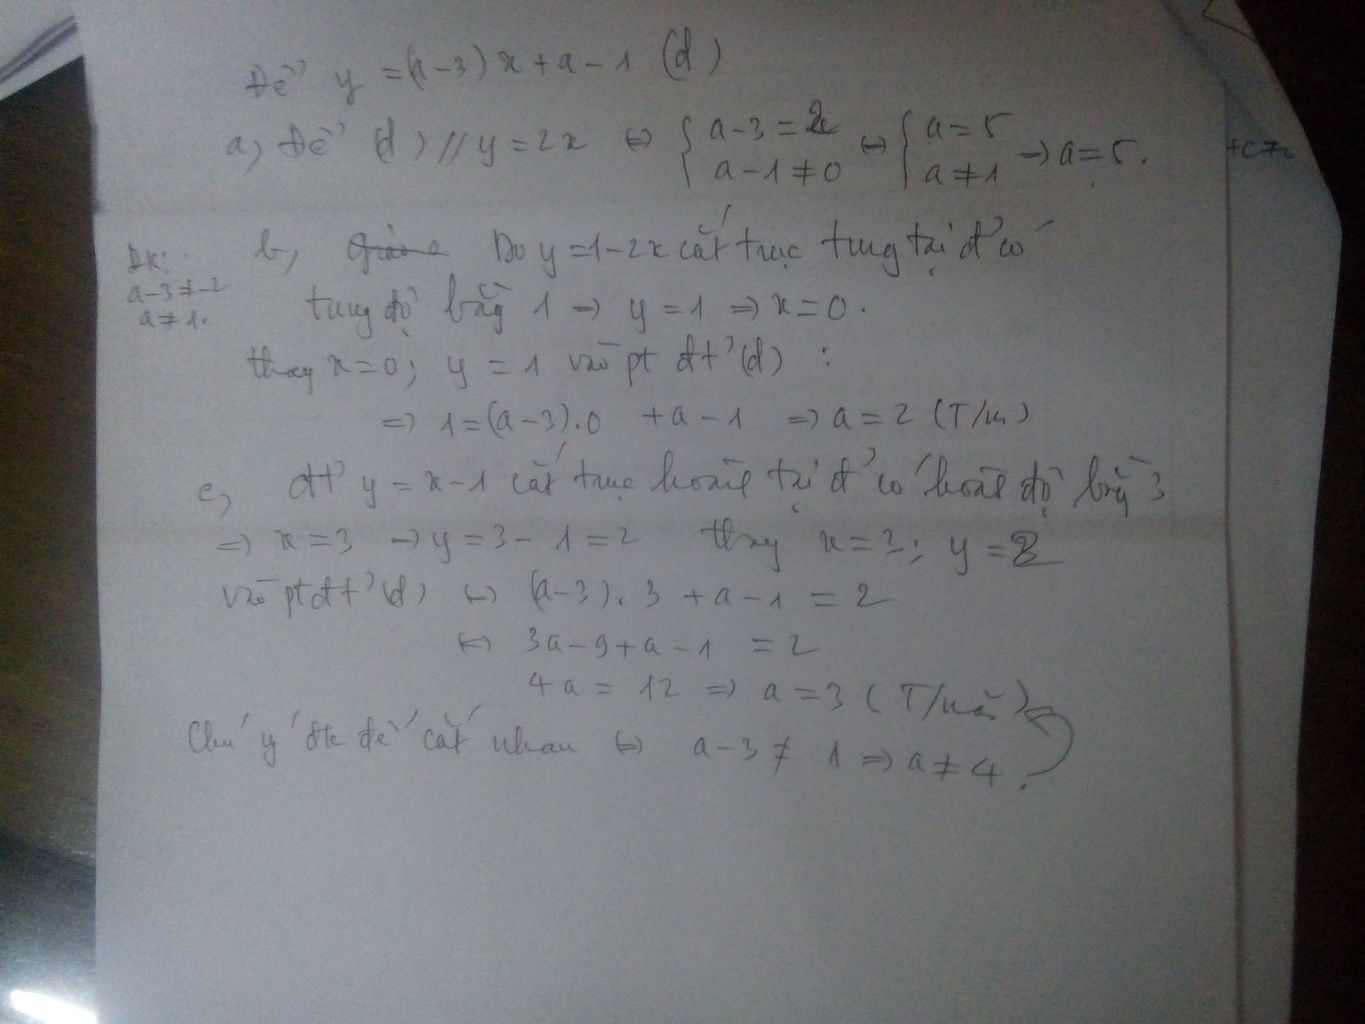 Để y = (a-3)x + a - 1 (d)
a, Để (d) // y = 2x ⇔ { a-3 = 2 a-1 ≠ 0 ⇔ { a = 5 a ≠ 1 → a = 5.
b, Do y = 1-2x cắt trục tung tại đ' có
ĐK: a-3 ≠ -2 a ≠ 1.
tung độ bằng 1 → y = 1 ⇒ x = 0.
thay x = 0; y = 1 vào pt đt' (d) :
⇒ 1 = (a-3).0 + a - 1 ⇒ a = 2 (T/m)
c, đt' y = x-1 cắt trục hoành tại đ' có hoành độ bằng 3
⇒ x = 3 → y = 3 - 1 = 2 thay x = 3; y = 2
vào pt đt' (d) ⇔ (a-3).3 + a - 1 = 2
⇔ 3a - 9 + a - 1 = 2
4a = 12 ⇒ a = 3 (T/mãn)
Chú ý đk để cắt nhau ⇔ a - 3 ≠ 1 ⇒ a ≠ 4.